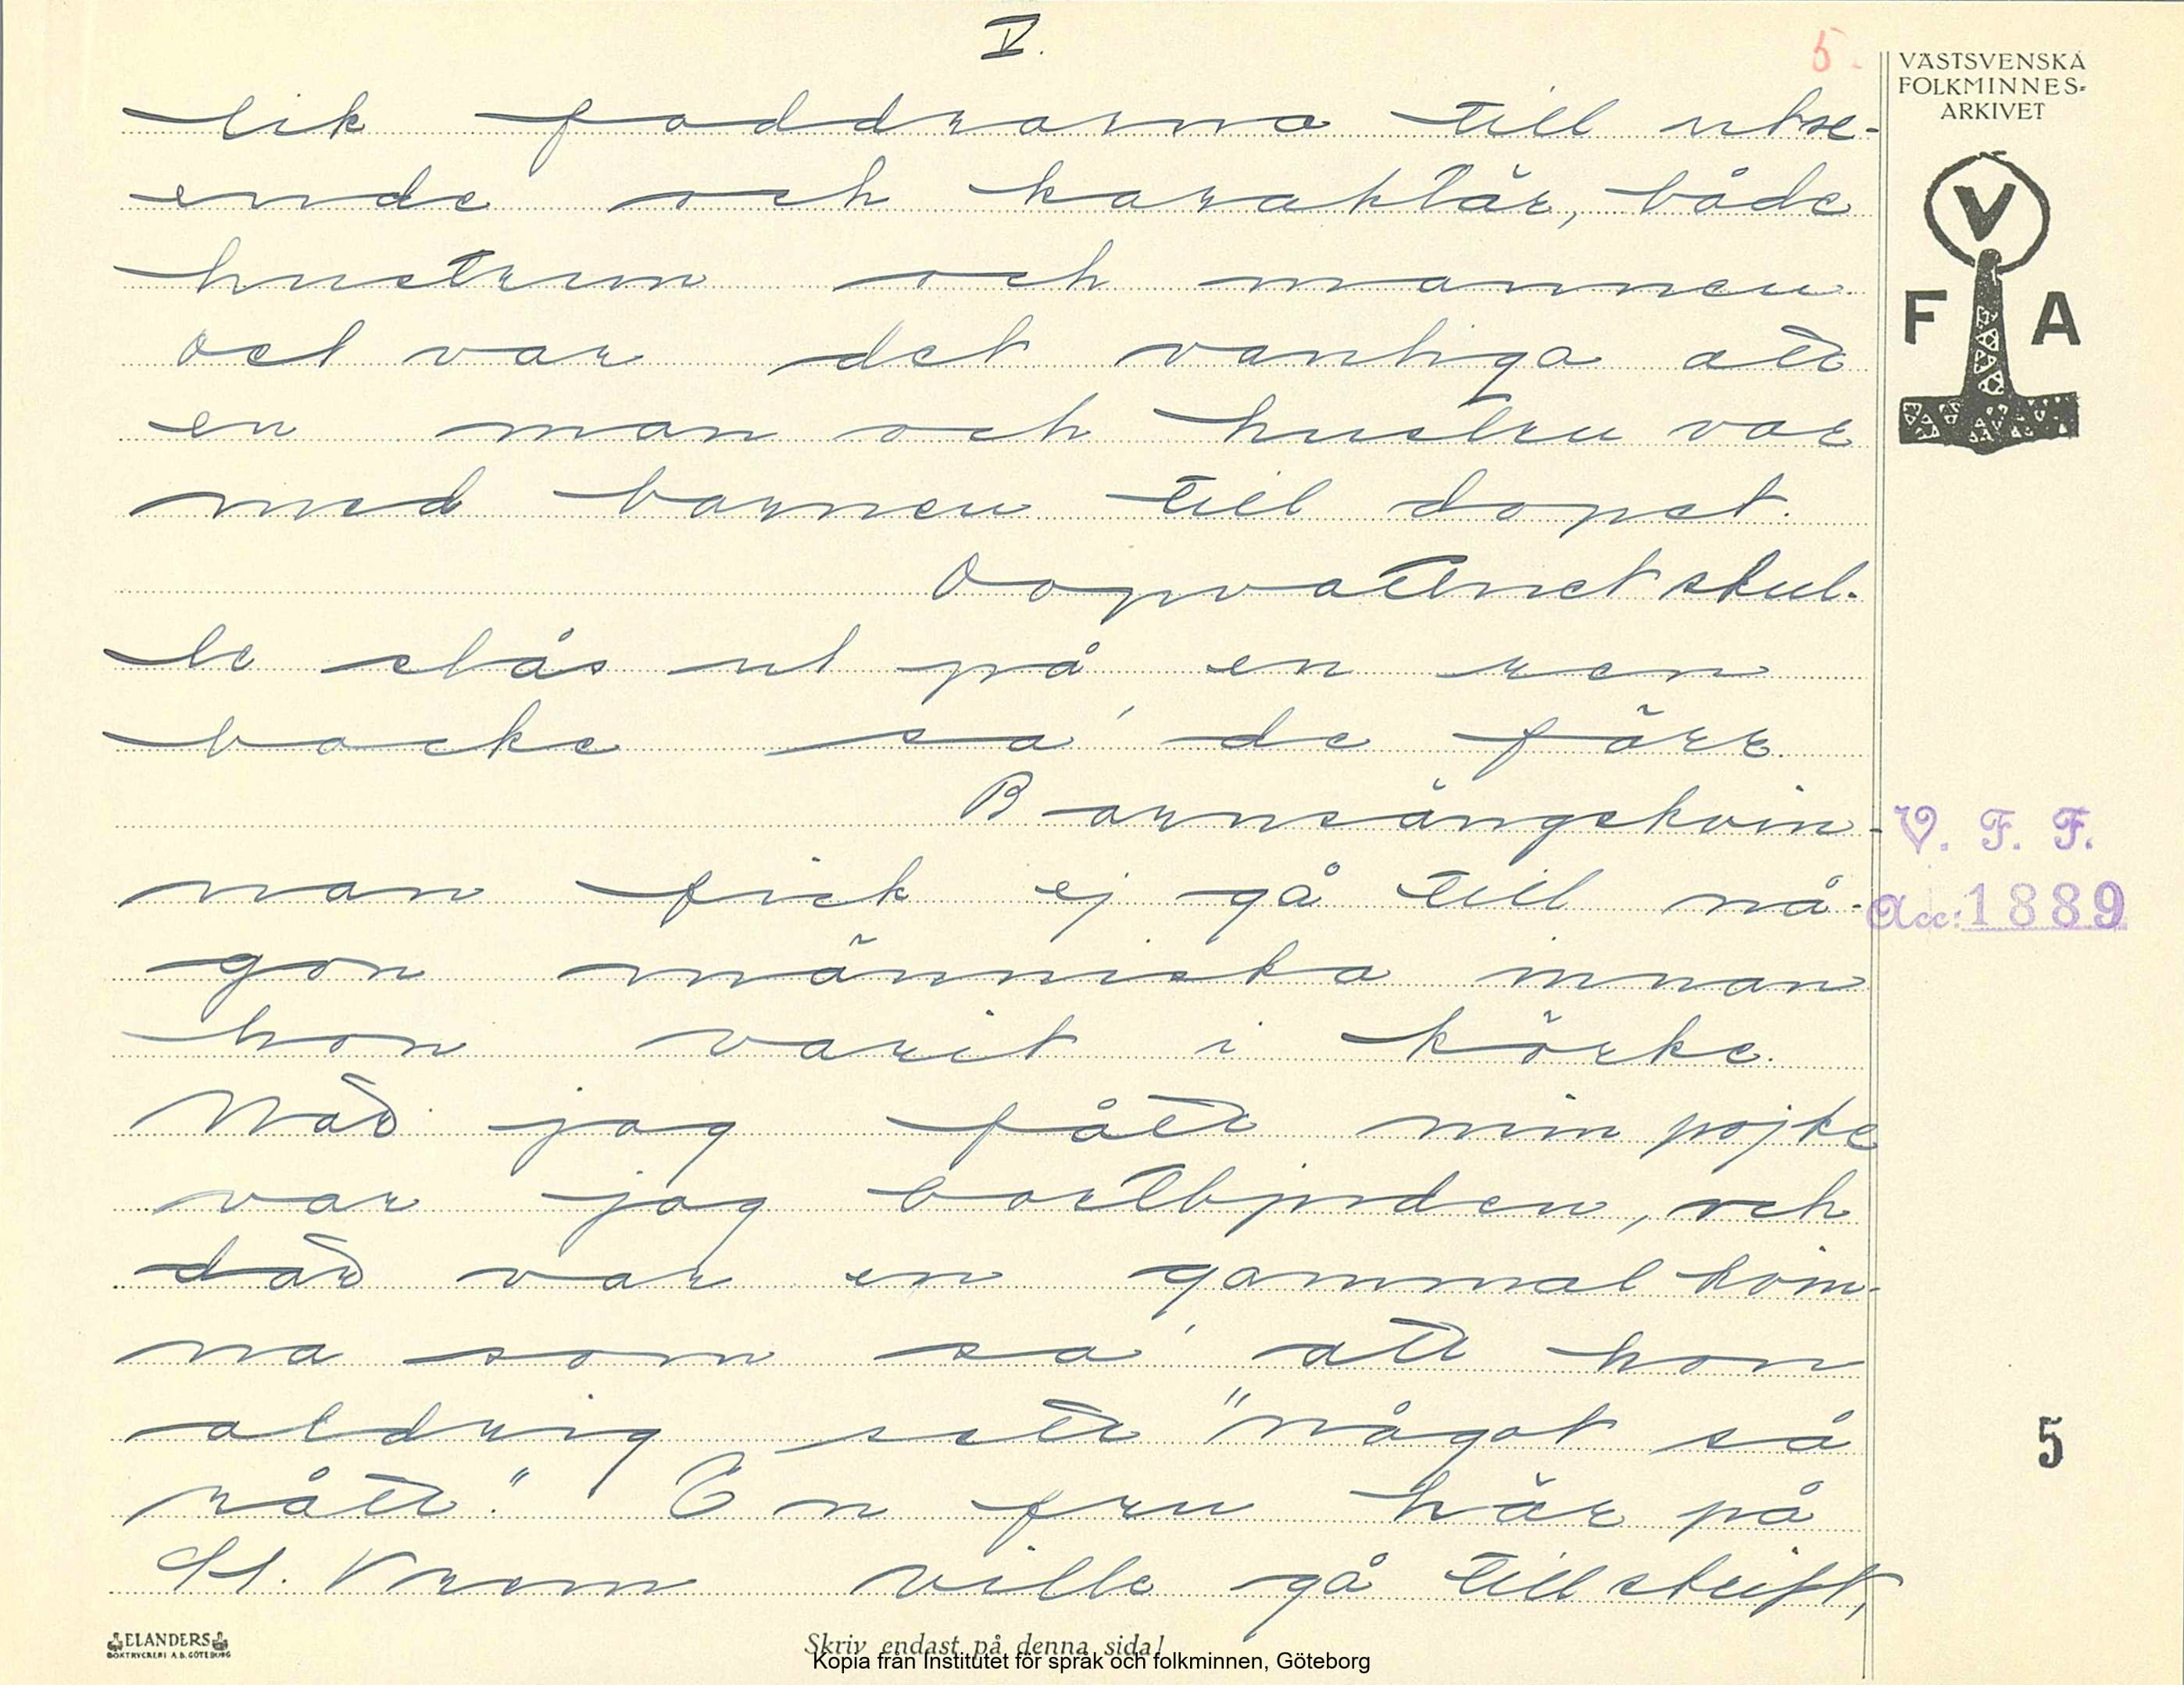 V.
5.
VÄSTSVENSKA
FOLKMINNES-
ARKIVET
V
F A
lik faddrarna till utse-
ende och karaktär, både
hustrun och mannen.
Det var det vanliga att
en man och hustru var
med barnen till dopet.
Dopvattnet skul-
le slås ut på en ren
backe sa' de förr.
Barnsängskvin-
nan fick ej gå till nå-
gon människa innan
hon varit i körke.
När jag fått min pojke
var jag bortbjuden, och
där var en gammal kvin-
na som sa' att hon
aldrig sett "något så
rått." En fru här på
St. Vrem ville gå till skrift,
V. F. F.
Acc: 1889
5
ELANDERS
BOKTRYCKERI A.B. GÖTEBORG
Skriv endast på denna sida!
Kopia från Institutet för språk och folkminnen, Göteborg